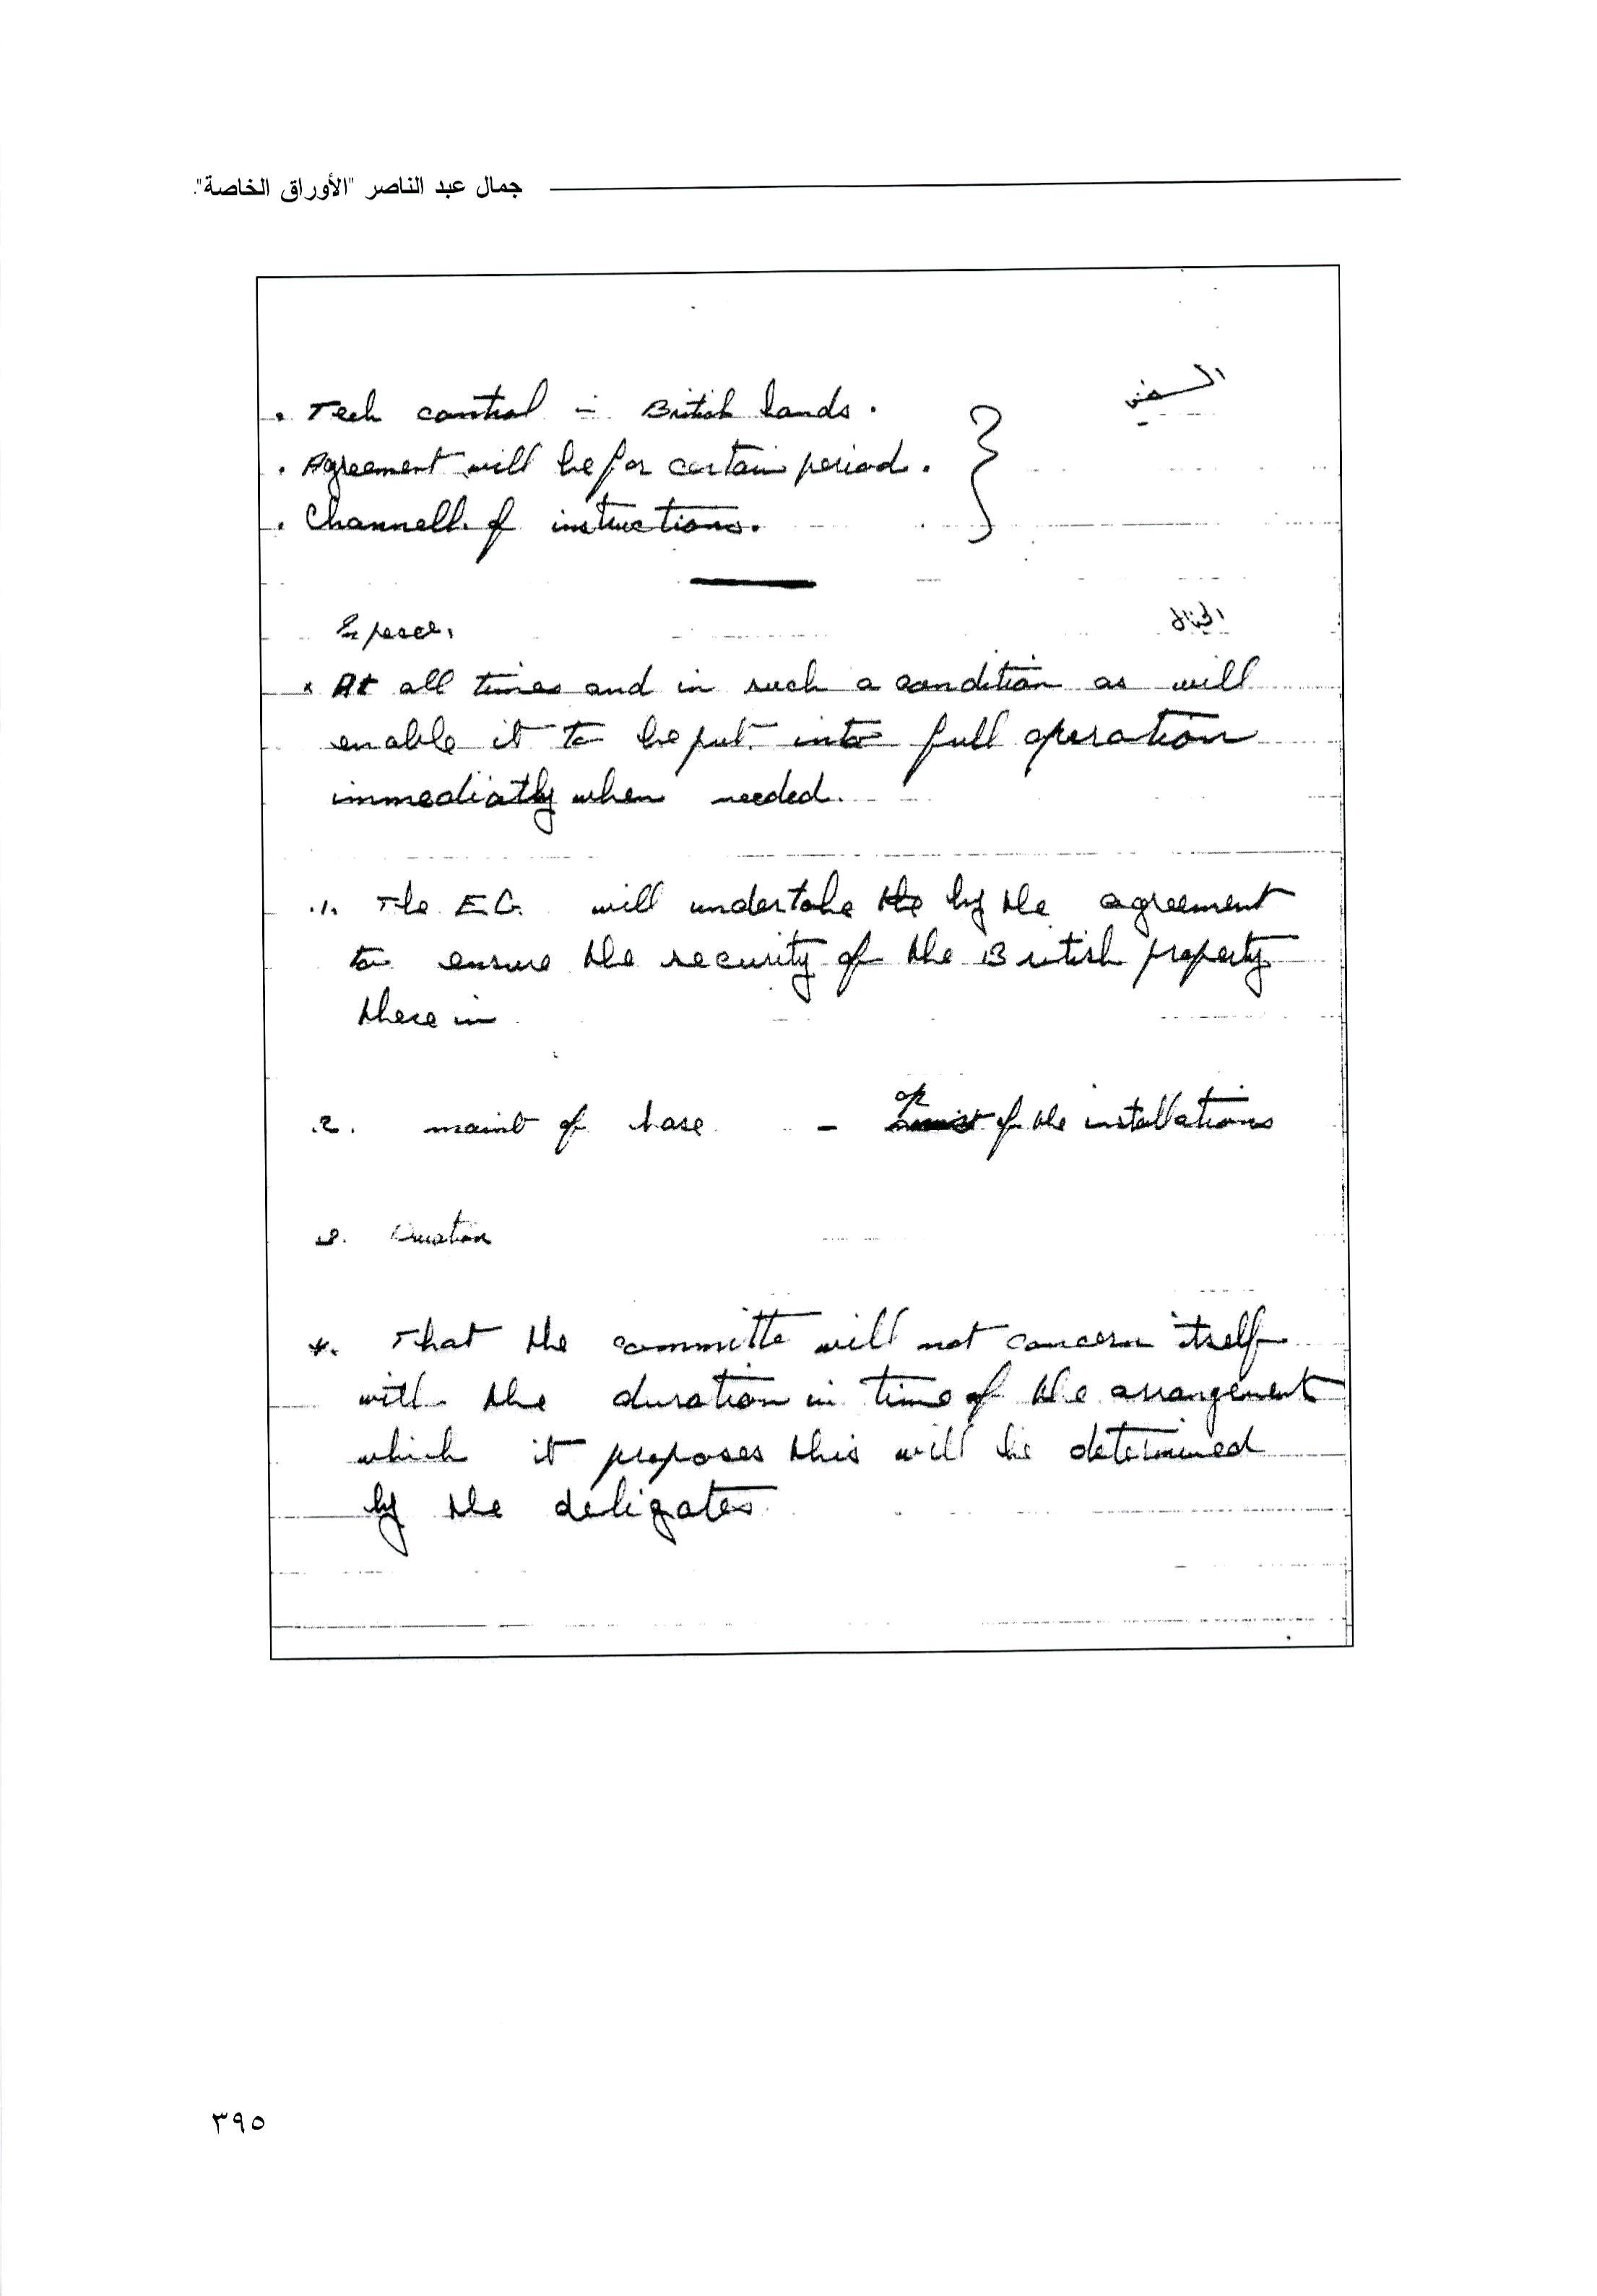 جمال عبد الناصر "الأوراق الخاصة".
. Tech control - British hands.
. Agreement will be for certain period.
. Channell of instructions.
In peace.
* At all times and in such a condition as will
enable it to be put into full operation
immediatly when needed.
.1. The E.G. will undertake the by the agreement
to ensure the security of the British property
there in
.2. maint of base - op of the installations
.3. Duration
*. That the committe will not concern itself
with the duration in time of the arrangement
which it proposes this will be determined
by the deligates
٣٩٥